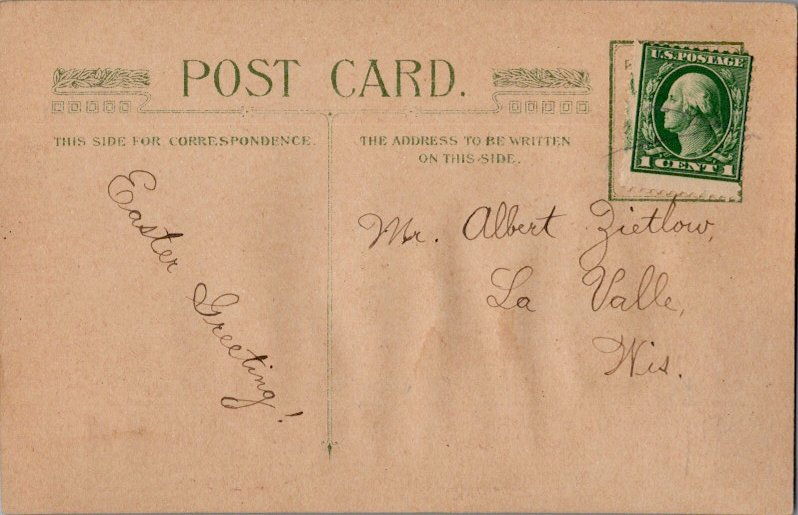 POST CARD.
THIS SIDE FOR CORRESPONDENCE.
THE ADDRESS TO BE WRITTEN
ON THIS SIDE.
U.S. POSTAGE
1 CENT 1
Easter Greeting!
Mr. Albert Zietlow,
La Valle,
Wis.